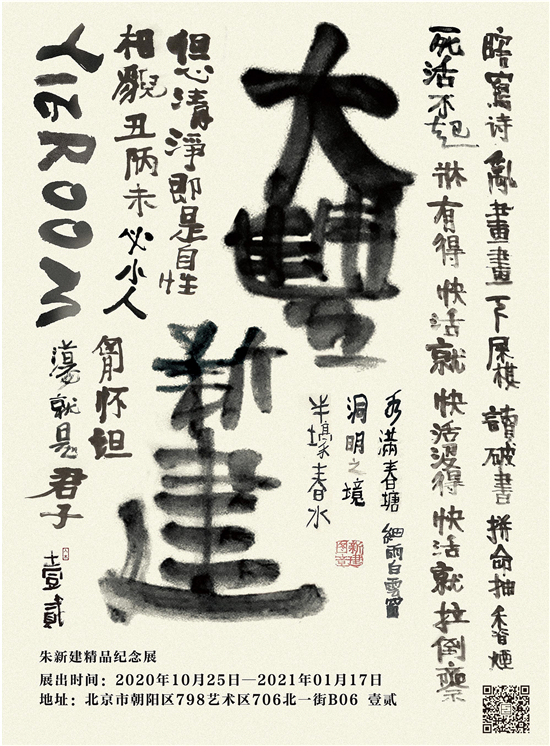 瞎寫诗亂畫畫下屎棋讀破書拼命抽香煙
死活不起牀有得快活就快活沒得快活就拉倒
大豐
新建
满春塘細雨白雲
洞明之境
半壕春水
但心清淨即是自性
相貌丑陋未必小人
胸怀坦
蕩就是君子
壹貳
YIEROOM
朱新建精品纪念展
展出时间：2020年10月25日—2021年01月17日
地址：北京市朝阳区798艺术区706北一街B06 壹贰